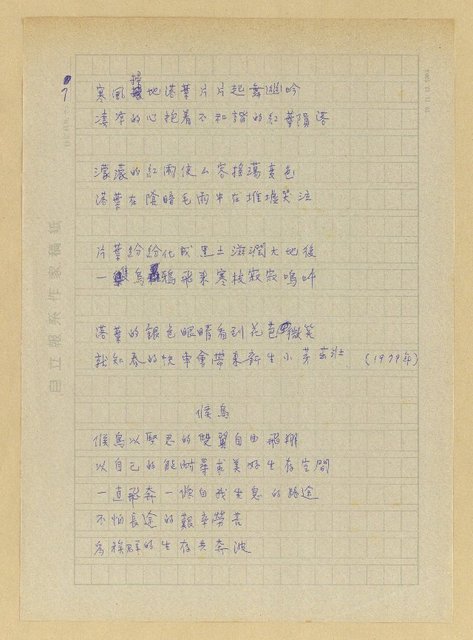 寒風 地落葉片片起舞 吟
淒涼的心抱着不和諧的紅葉隕落
濛濛的紅雨使人寒 搖蕩 色
落葉在陰暗毛雨中在堆墟笑泣
片葉紛紛化成黑土滋潤大地後
一 烏鴉飛來寒枝寂寂鳴
落葉的銀色眼睛看到花 微笑
就知春的快車會帶來新生小芽茁壯 (1979年)
候鳥
候鳥以堅忍的雙翼自由飛翔
以自己的能耐尋求美好生存空間
一直飛奔一條自我生息的路途
不怕長途的艱辛勞苦
為族群的生存共奔波
自立報系作家稿紙